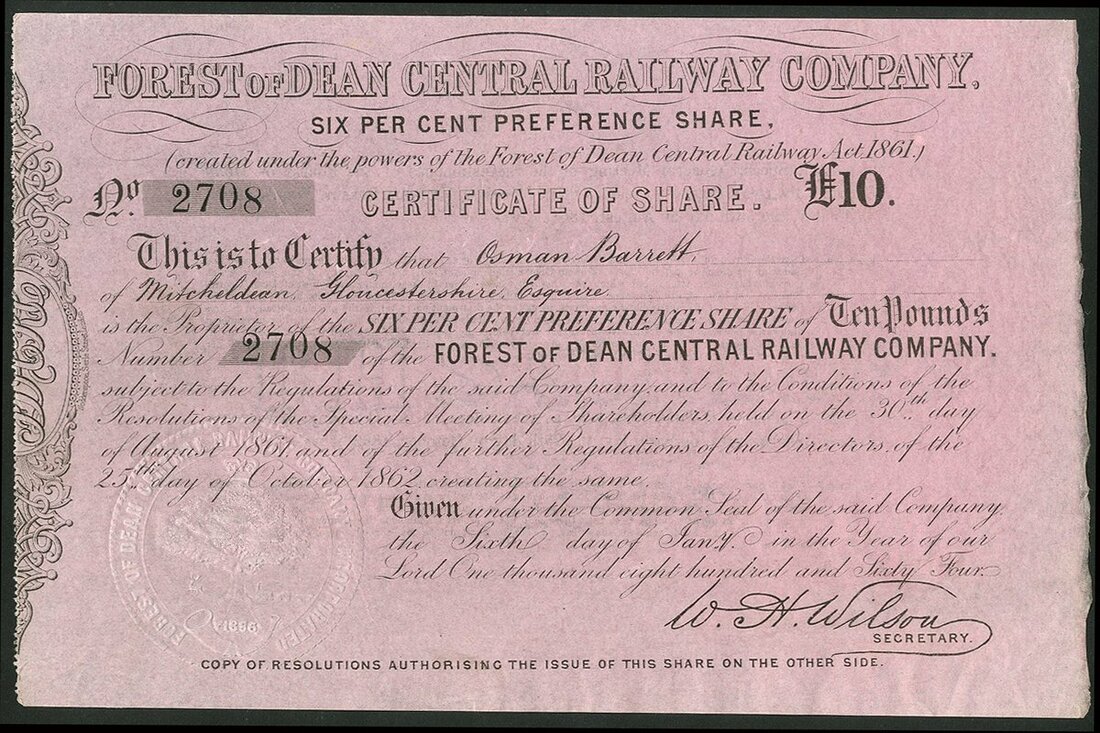 FOREST OF DEAN CENTRAL RAILWAY COMPANY.
SIX PER CENT PREFERENCE SHARE,
(created under the powers of the Forest of Dean Central Railway Act 1861.)
No. 2708 CERTIFICATE OF SHARE. £10.
This is to Certify that Osman Barrett,
of Mitcheldean, Gloucestershire, Esquire,
is the Proprietor of the SIX PER CENT PREFERENCE SHARE of Ten Pounds
Number 2708 of the FOREST OF DEAN CENTRAL RAILWAY COMPANY.
subject to the Regulations of the said Company, and to the Conditions of the
Resolutions of the Special Meeting of Shareholders, held on the 30th day
of August 1861, and of the further Regulations of the Directors, of the
25th day of October 1862, creating the same.
Given under the Common Seal of the said Company,
the Sixth day of Jany. in the Year of our
Lord One thousand eight hundred and Sixty Four.
W. H. Wilson
SECRETARY.
FOREST OF DEAN CENTRAL RAILWAY COMPANY
1856
COPY OF RESOLUTIONS AUTHORISING THE ISSUE OF THIS SHARE ON THE OTHER SIDE.